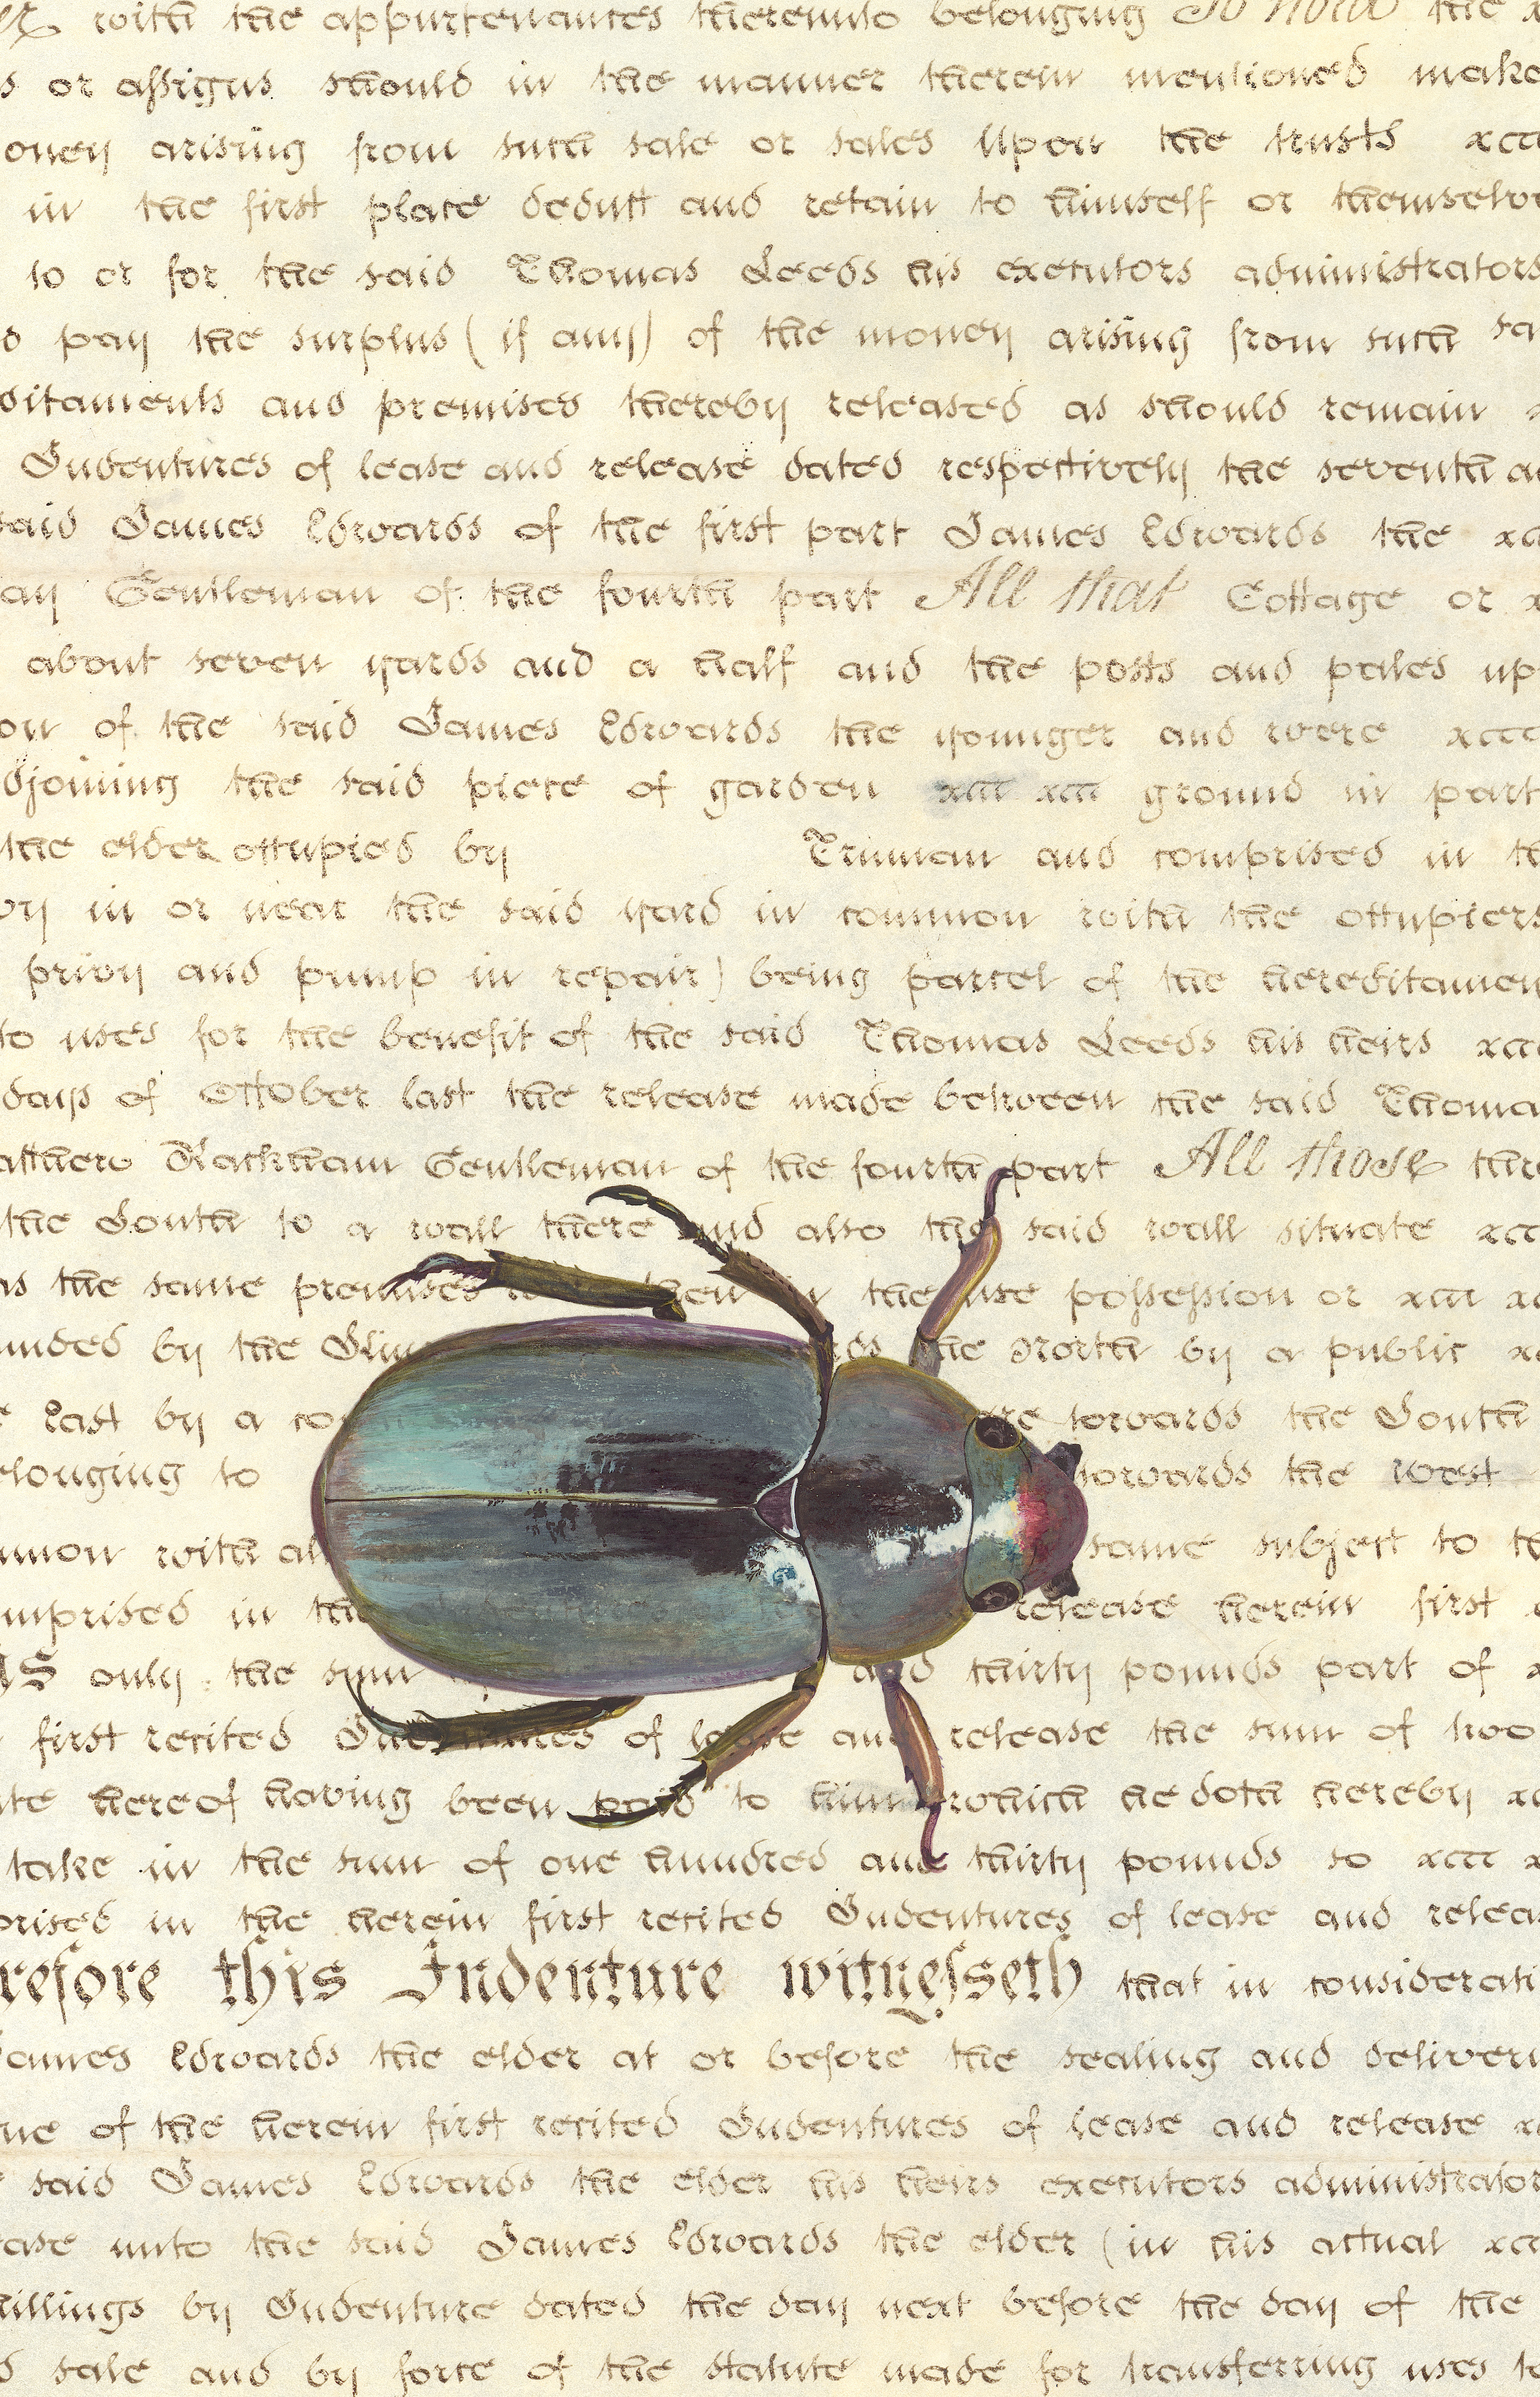 with the appurtenances thereunto belonging To hold the
s or assigns should in the manner therein mentioned make
oney arising from such sale or sales Upon the trusts
in the first place deduct and retain to himself or themselve
to or for the said Thomas Leeds his executors administrators
pay the surplus (if any) of the money arising from such sa
ditaments and premises thereby released as should remain
Indentures of lease and release dated respectively the seventh a
said James Edwards of the first part James Edwards the
ay Gentleman of the fourth part All that Cottage or
about seven yards and a half and the posts and pales up
on of the said James Edwards the younger and were
djoining the said piece of garden ground in part
the elder occupied by Truman and comprised in th
in or near the said yard in common with the occupiers
privy and pump in repair) being parcel of the hereditamen
to uses for the benefit of the said Thomas Leeds his heirs
days of October last the release made between the said Thoma
atthew Rackham Gentleman of the fourth part All those thre
the South to a wall there and also the said wall situate
as the same premises then the use possession or
unded by the the North by a public
East by a towards the South
elonging to towards the West
mmon with al same subject to t
mprised in th release herein first
only the sum and thirty pounds part of
first recited Indentures of lease and release the sum of two
ate hereof having been paid to him which he doth hereby
take in the sum of one hundred and thirty pounds so
prised in the herein first recited Indentures of lease and releas
refore this Indenture witnesseth that in considerati
James Edwards the elder at or before the sealing and deliveri
ue of the herein first recited Indentures of lease and release
said James Edwards the elder his heirs executors administrator
ease unto the said James Edwards the elder (in his actual
hillings by Indenture dated the day next before the day of the
d sale and by force of the statute made for transferring uses